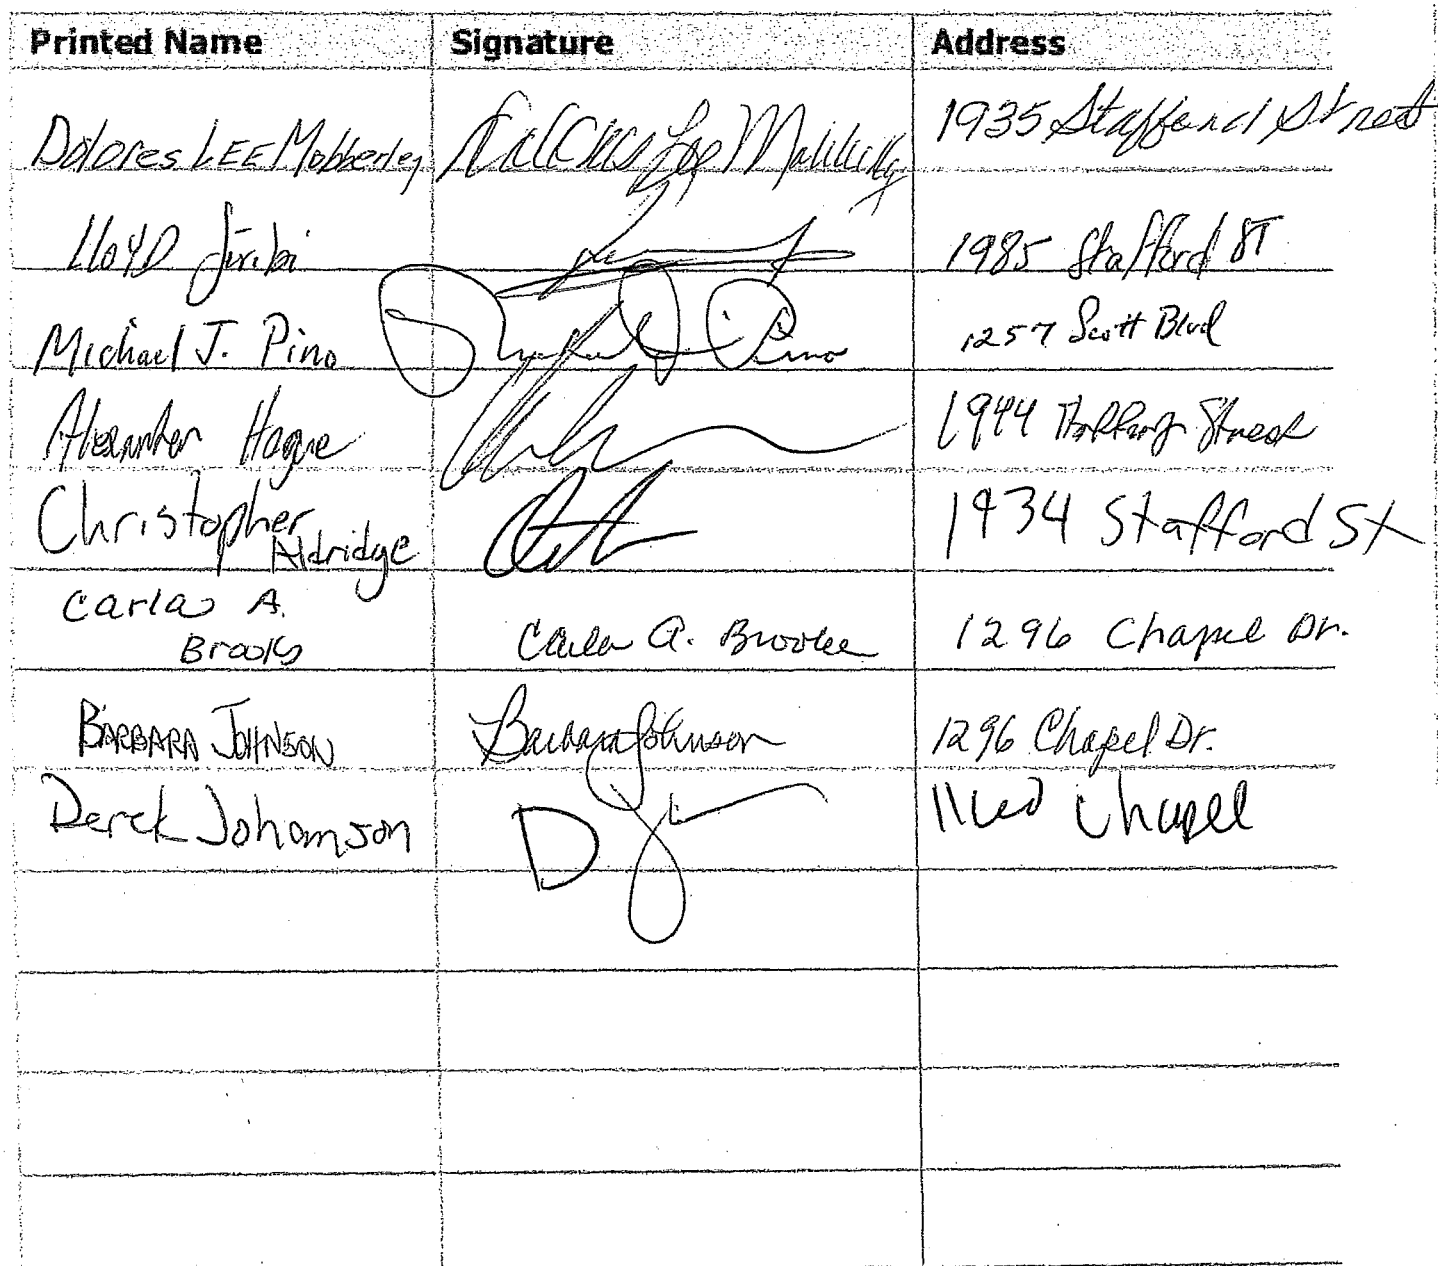 Printed Name Signature Address
Dolores LEE Mobberley Dolores Lee Mobberley 1935 Stafford Street
LloyD 1985 Stafford ST
Michael J. Pino Michael J Pino 1257 Scott Blvd
Alexander Hague 1944 Street
Christopher 1934 Stafford St
Aldridge
Carla A.
Brooks Carla A. Brooks 1296 Chapel Dr.
BARBARA JOHNSON Barbara Johnson 1296 Chapel Dr.
Derek Johamson Chapel